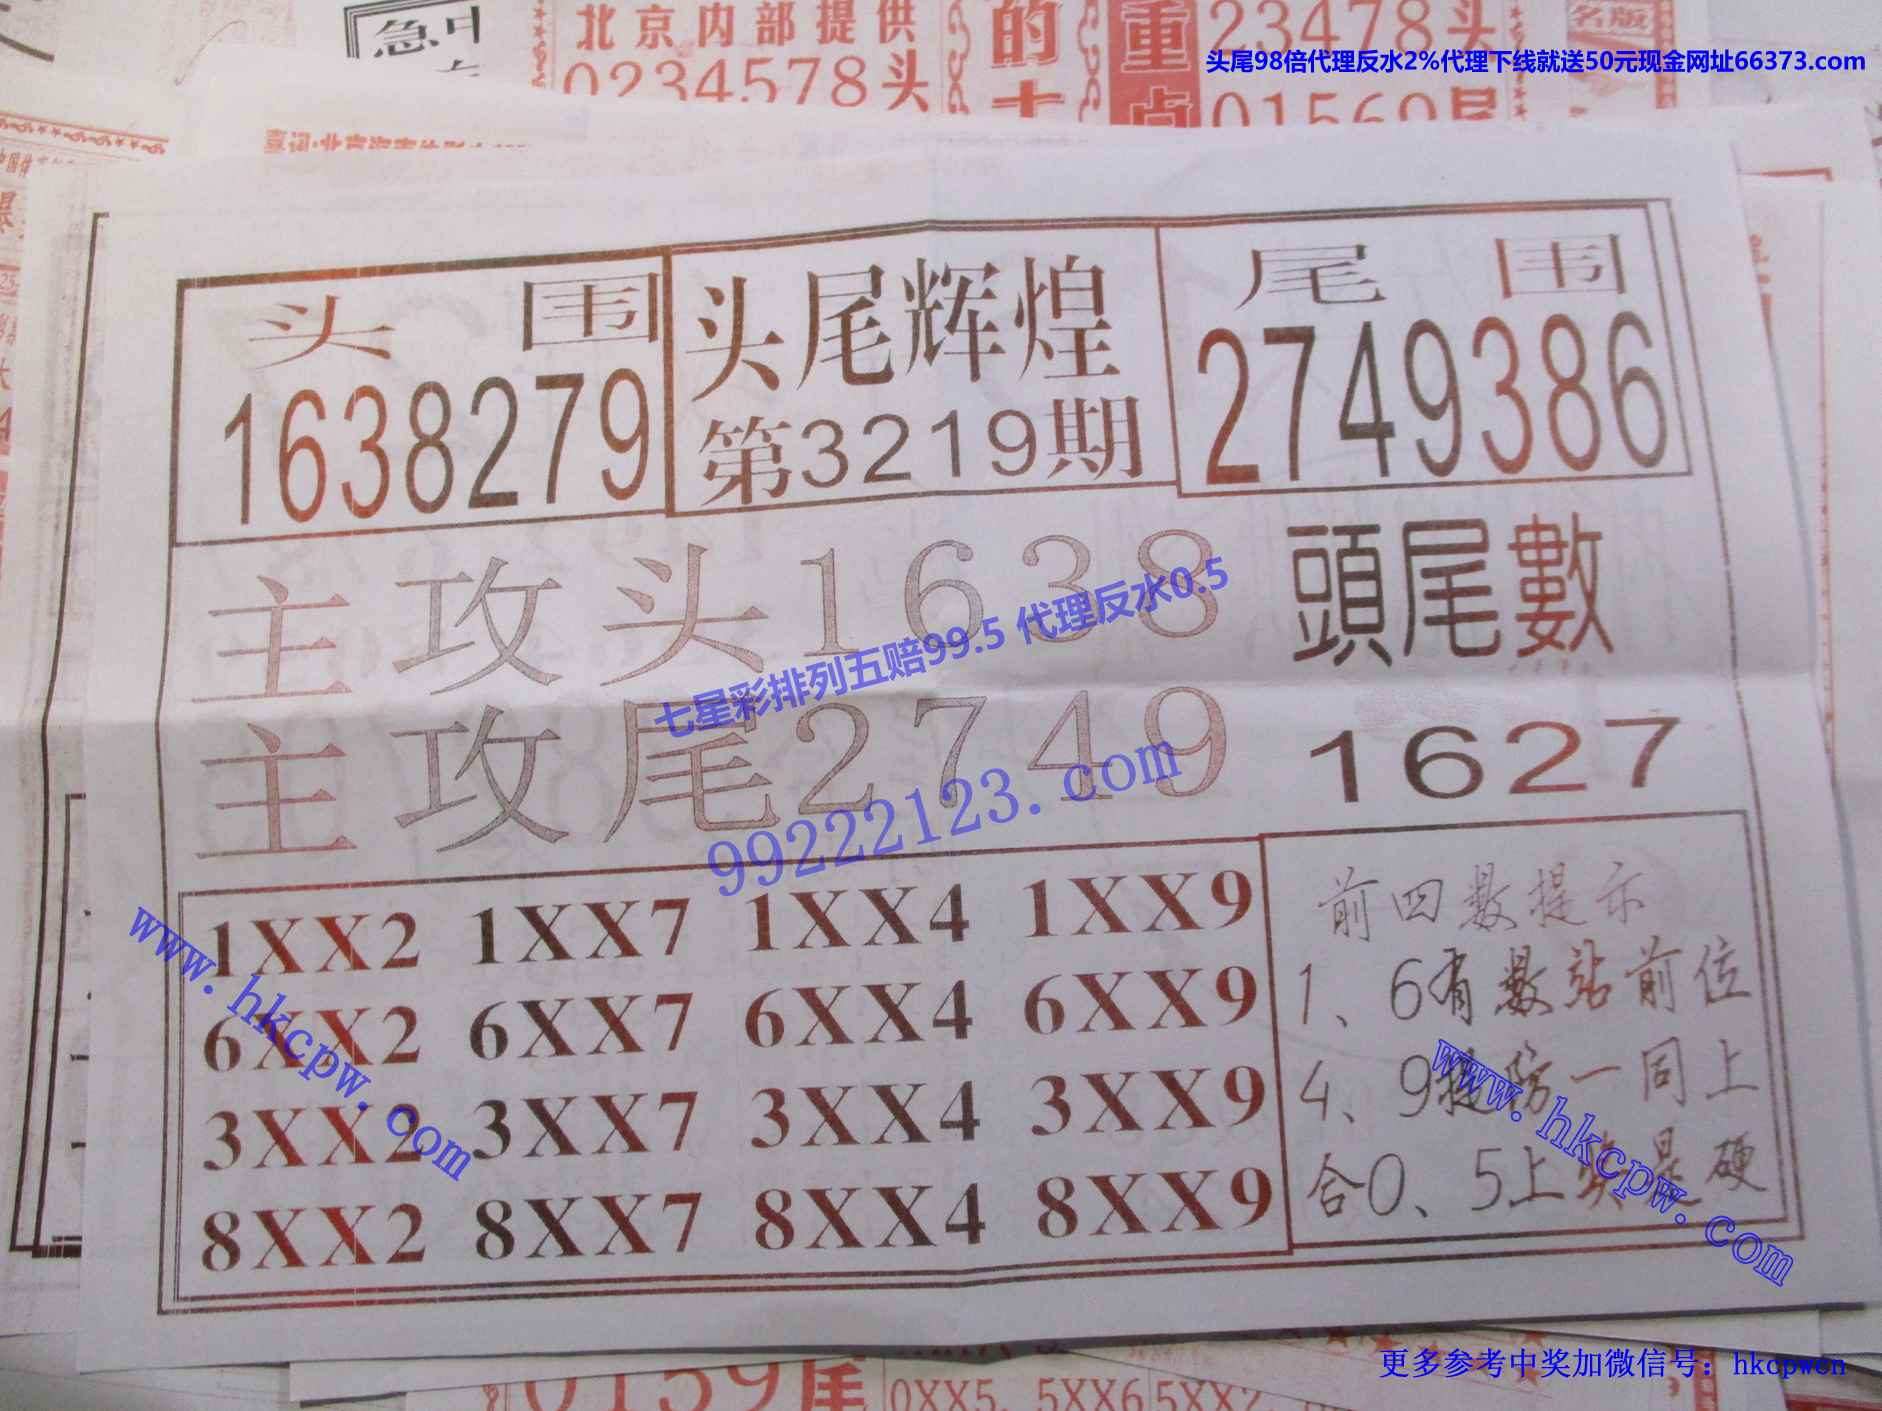 急中
北京内部提供
0234578头
的
重
23478头
名版
头尾98倍代理反水2%代理下线就送50元现金网址66373.com
头围
1638279
头尾辉煌
第3219期
尾围
2749386
主攻头1638
頭尾數
七星彩排列五赔99.5 代理反水0.5
主攻尾2749
1627
99222123.com
1XX2 1XX7 1XX4 1XX9
6XX2 6XX7 6XX4 6XX9
3XX2 3XX7 3XX4 3XX9
8XX2 8XX7 8XX4 8XX9
www.hkcpw.com
前四数提示
1、6有数站前位
4、9提防一同上
合0、5上奖是硬
www.hkcpw.com
0159尾
0XX5. 5XX6 5XX2.
更多参考中奖加微信号：hkcpwcn